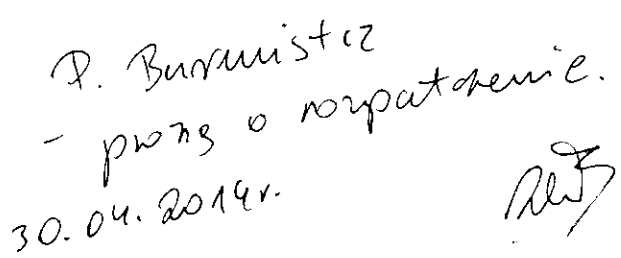 P. Burmistrz
- proszę o rozpatrzenie.
30.04.2014r.